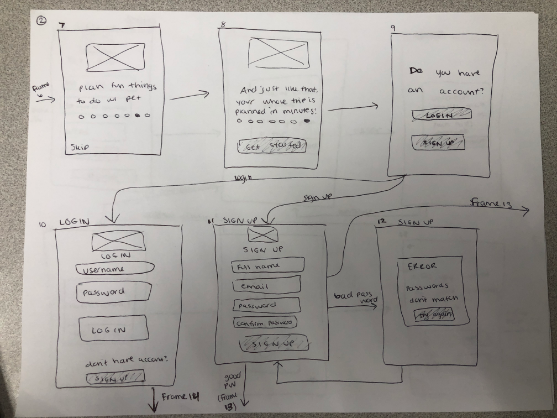 2
7
8
9
Frame
6
Plan fun things
to do w/ pet
SKIP
And just like that
your whole trip is
planned in minutes!
Get started
Do you have
an account?
LOGIN
SIGN UP
login
sign up
Frame 13
10 LOGIN
LOGIN
username
password
LOGIN
don't have account?
SIGN UP
Frame 14
11 SIGN UP
SIGN UP
Full name
email
password
confirm password
SIGN UP
good
PW
(Frame
13)
bad pass
word
12 SIGN UP
ERROR
Passwords
don't match
try again